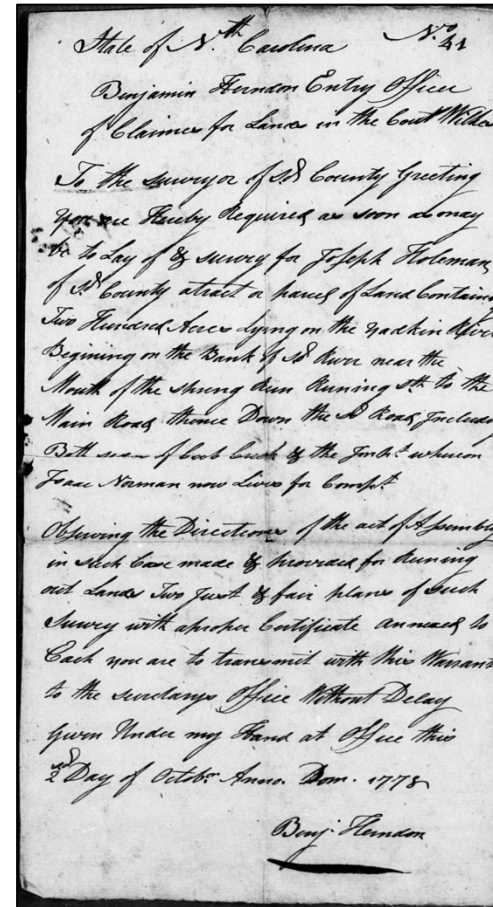 State of N.th Carolina No 41
Benjamin Herndon Entry Officer
of Claimes for Lands in the Cout Wilkes
To the surveyor of sd County Greeting
you are Hereby Required as soon as may
be to Lay of & survey for Joseph Holeman
of sd County a tract or parcel of Land Containing
Two Hundred Acres Lying on the yadkin River
Begining on the Bank of sd River near the
Mouth of the spring Run Runing sth to the
Main Road thence Down the sd Road Includeg
Both of Cub Creek & the wheron
Isaac Norman now Lives for Compt
Observing the Directions of the act of Assembly
in such Case made & provided for Runing
out Lands Two Just & fair plans of such
survey with a proper Certificate annexed to
Each you are to transmit with this Warrant
to the secretarys Office Without Delay
given Under my Hand at Office this
2nd Day of Octobr Anno. Dom. 1778
Benj. Herndon